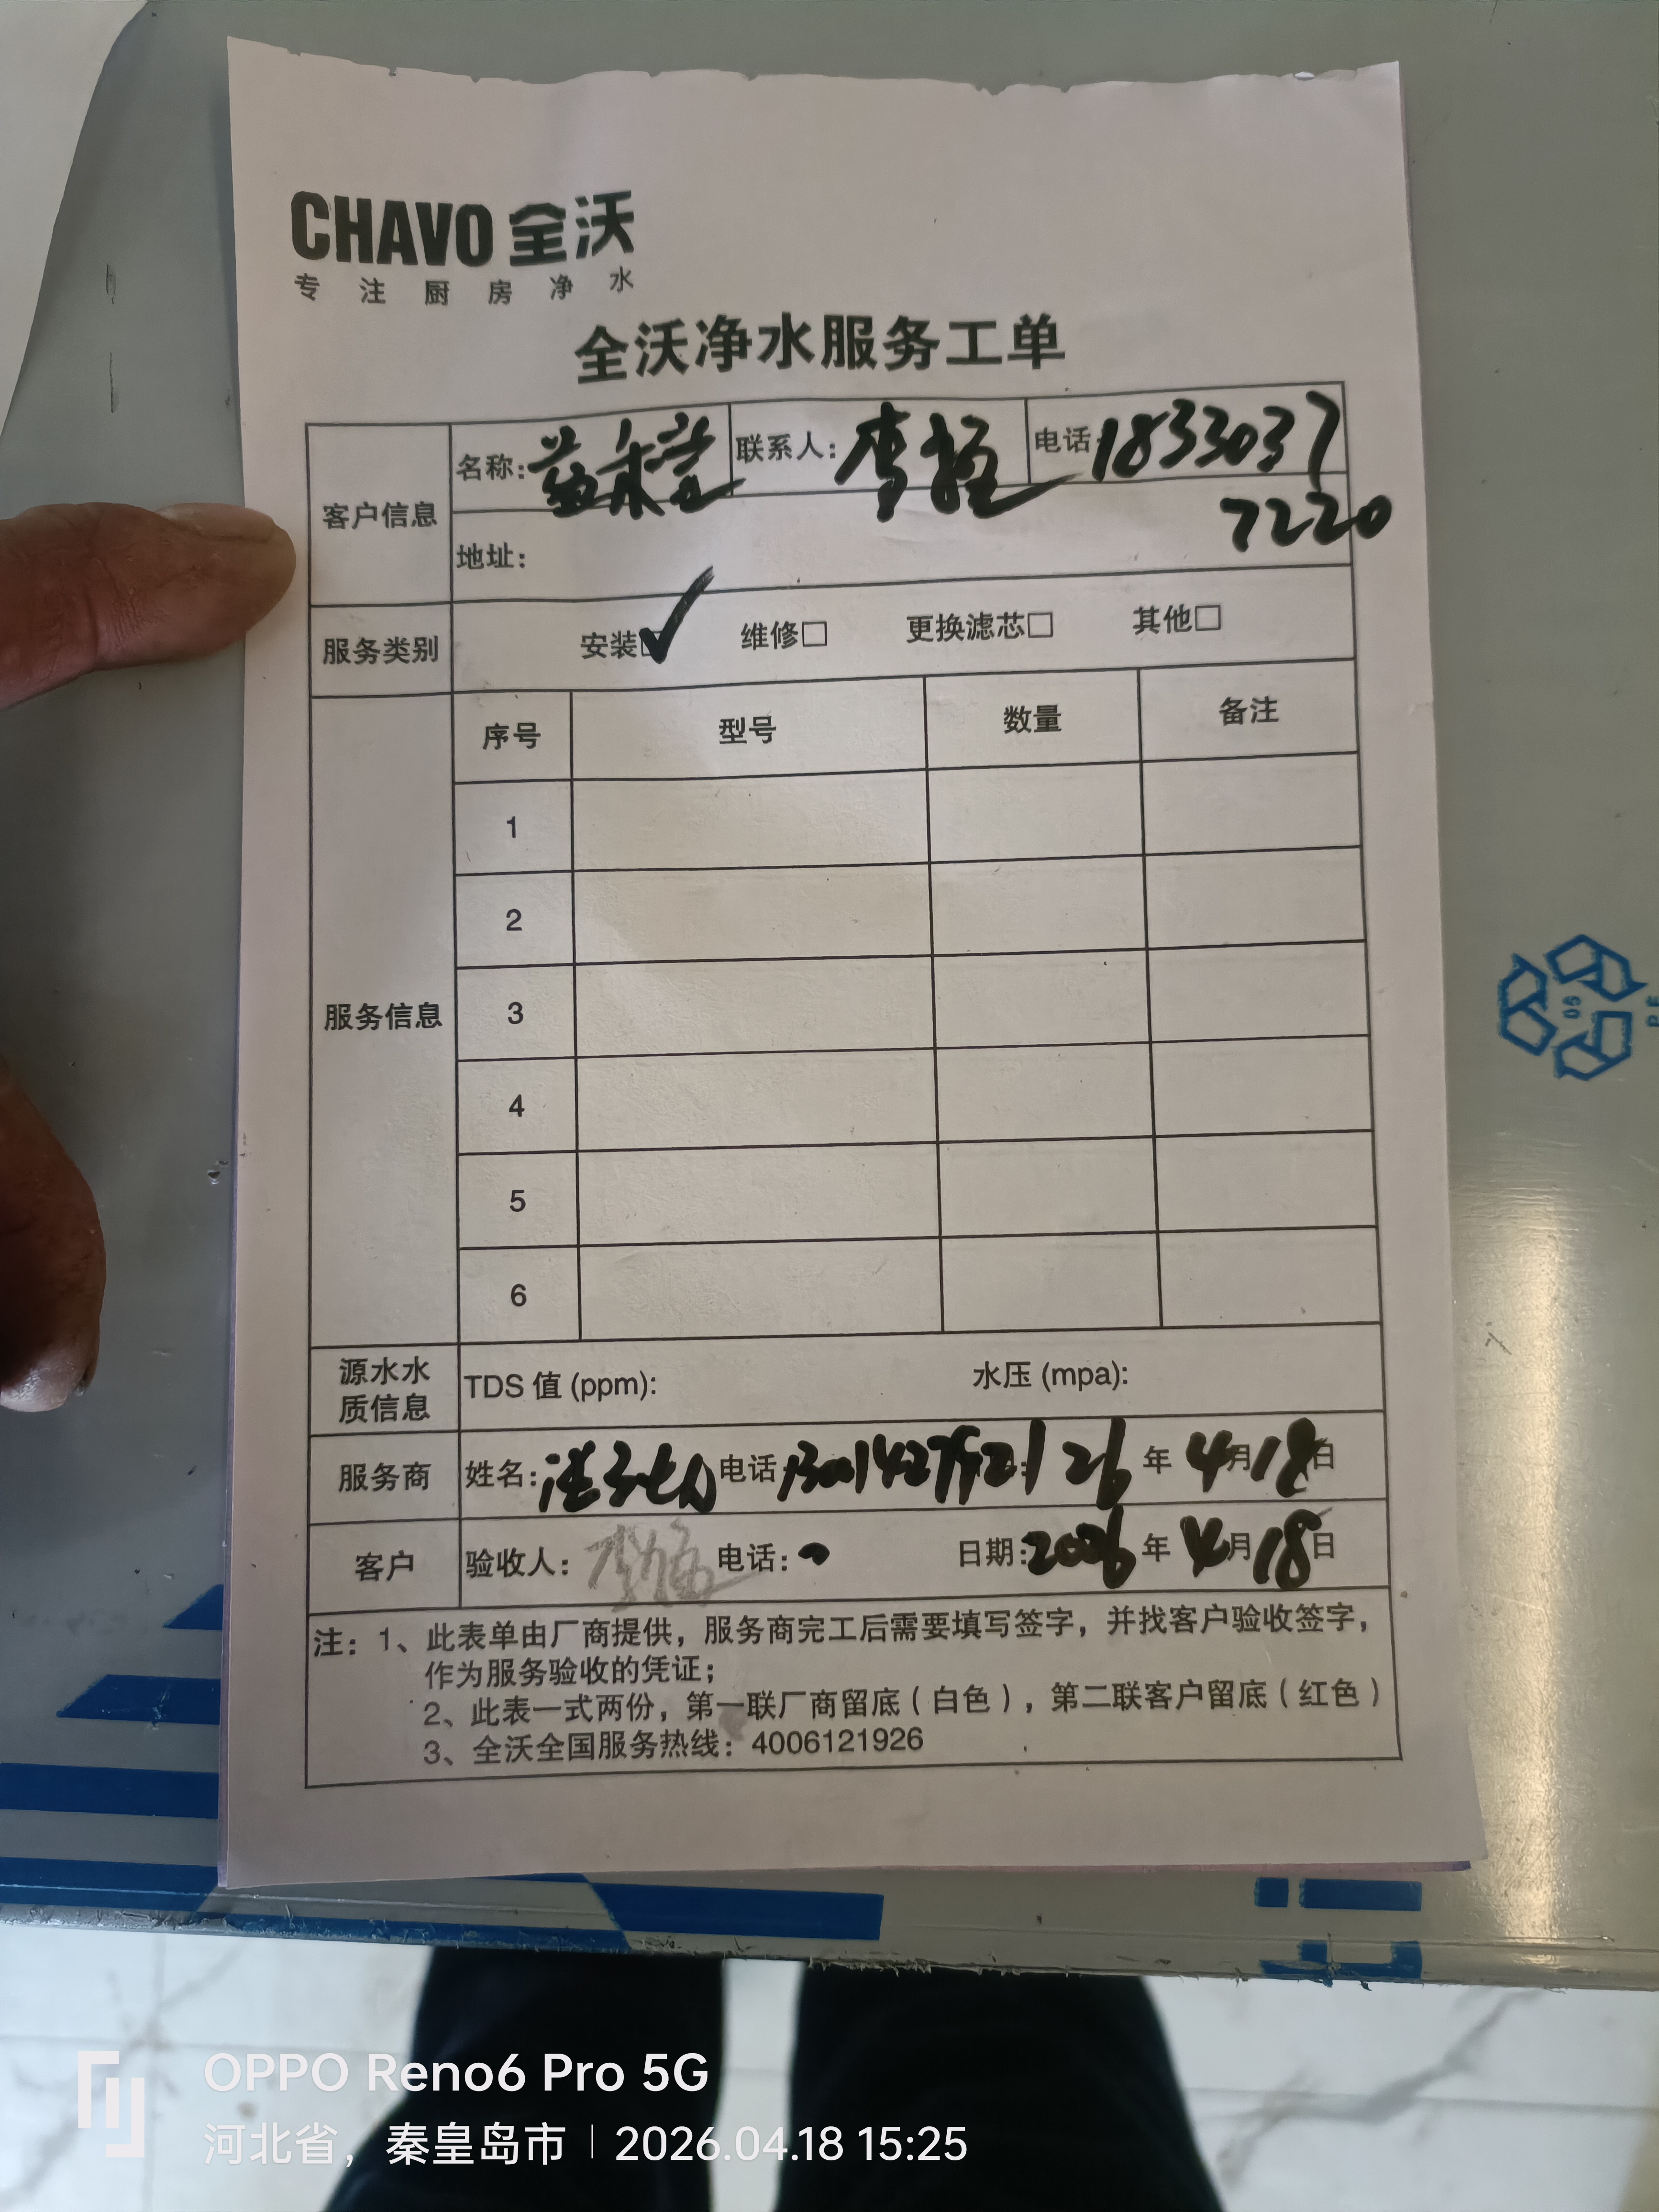 CHAVO 全沃
专注厨房净水
全沃净水服务工单
客户信息 名称: 联系人: 李 电话: 1833037
7220
地址:
服务类别 安装☑ 维修□ 更换滤芯□ 其他□
服务信息 序号 型号 数量 备注
1
2
3
4
5
6
源水水质信息 TDS 值 (ppm): 水压 (mpa):
服务商 姓名: 电话: 26 年 4月18日
客户 验收人: 李 电话: 日期: 2026 年 4月18日
注: 1、此表单由厂商提供, 服务商完工后需要填写签字, 并找客户验收签字,
作为服务验收的凭证;
2、此表一式两份, 第一联厂商留底 (白色), 第二联客户留底 (红色)
3、全沃全国服务热线: 4006121926
OPPO Reno6 Pro 5G
河北省, 秦皇岛市 | 2026.04.18 15:25